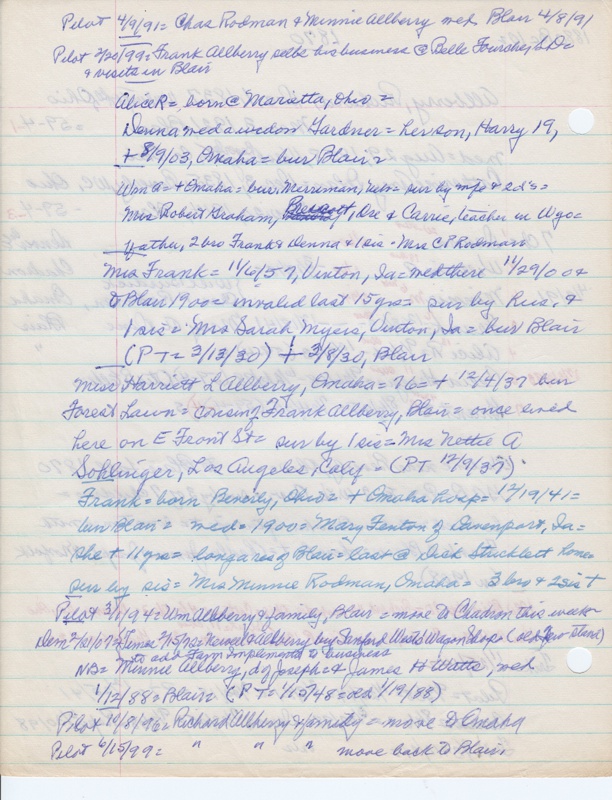 Pilot 4/9/91 = Chas Rodman & Minnie Allberry med Blair 4/8/91
Pilot 3/20/99 = Frank Allberry sells his business @ Belle Fourche, S.D.
& visits in Blair
Alice R = born @ Marietta, Ohio =
Denna med a widow Gardner = her son, Harry 19,
+ 8/9/03, Omaha = bur Blair =
Wm A = + Omaha = bur Merriman, Neb = sur by wife & 2 d's =
Mrs Robert Graham, Prescott, Ore & Carrie, teacher in Wyo =
father, 2 bro Frank & Denna & 1 sis = Mrs CP Rodman
Mrs Frank = 11/6/57, Vinton, Ia = med there 11/29/00 &
to Blair 1900 = invalid last 15 yrs = sur by Hus. &
1 sis = Mrs Sarah Myers, Vinton, Ia = bur Blair
(PT = 3/13/30) + 3/8/30, Blair
Miss Harriett L Allberry, Omaha = 76 = + 12/4/37 bur
Forest Lawn = cousin of Frank Allberry, Blair = once lived
here on E Front St = sur by 1 sis = Mrs Nettie A
Sohlinger, Los Angeles, Calif = (PT 12/9/37)
Frank = born Ohio = + Omaha hosp = 12/19/41 =
bur Blair = med = 1900 = Mary Fenton of Davenport, Ia =
she + 11 yrs = long a res of Blair = last @ Dick home
sur by sis = Mrs Minnie Rodman, Omaha = 3 bro & 2 sis +
Pilot 3/1/94 = Wm Allberry & family, Blair = move to Chadron this week
Allberry buy Sanford Watts Wagon Shop
to add Farm Implements to business
NB = Minnie Allberry, d of Joseph = & James H Watts, med
1/12/88 = Blair (PT = 1/15/48 = 1/19/88)
Pilot 10/8/96 = Richard Allberry & family = move to Omaha
Pilot 6/15/99 = " " " move back to Blair.